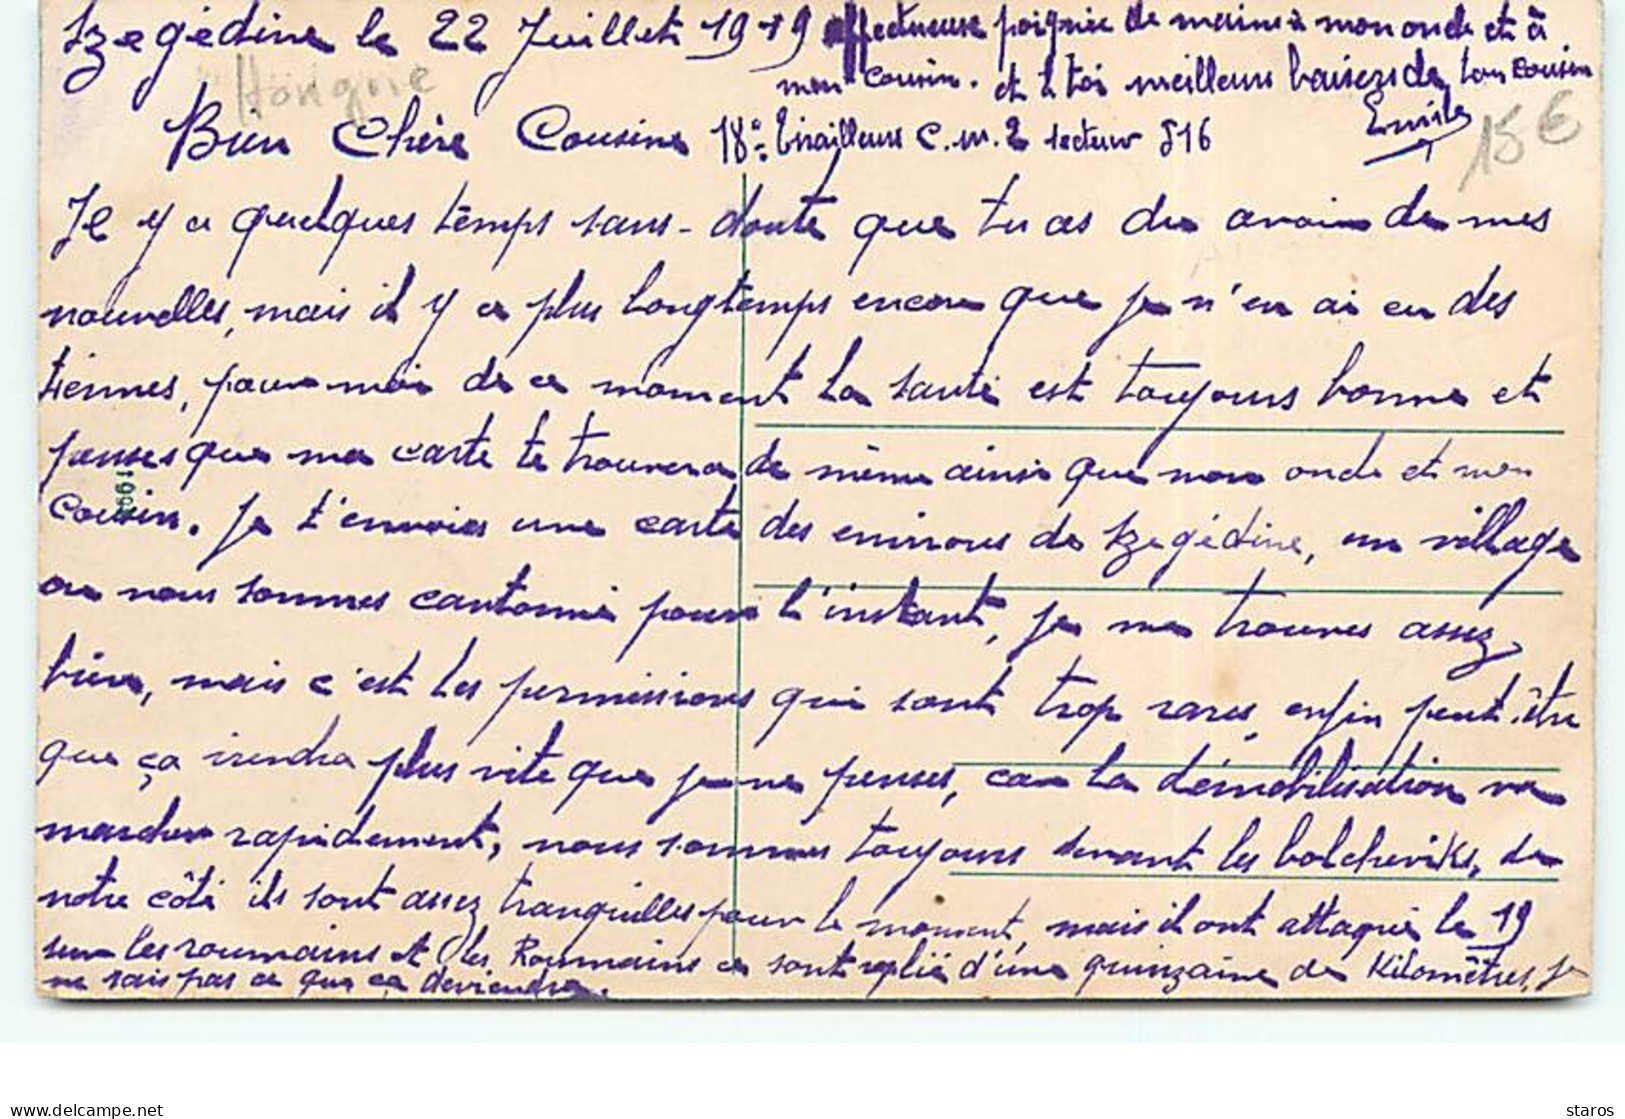 Szegédine le 22 Juillet 1919
Hongrie
Bien Chère Cousine
Il y a quelques temps sans-doute que tu as du avoir de mes
nouvelles, mais il y a plus longtemps encore que je n'en ai eu des
tiennes, pour moi de ce moment la santé est toujours bonne et
penses que ma carte te trouvera de même ainsi que mon oncle et mon
Cousin. Je t'envoies une carte des environs de Szegédine, un village
ou nous sommes cantonné pour l'instant, je me trouves assez
bien, mais c'est les permissions qui sont trop rares, enfin peut-être
que ça viendra plus vite que je ne penses, car la démobilisation va
marcher rapidement, nous sommes toujours devant les bolcheviks, de
notre côté ils sont assez tranquilles pour le moment, mais il ont attaqué le 19
sur les roumains et les Roumains ce sont replié d'une quinzaine de Kilomètres, Je
ne sais pas ce que ça deviendra.
affectueuse poignée de mains à mon oncle et à
mon Cousin. et à toi meilleurs baisers de ton Cousin
Emile
18e Tirailleurs C.M.2 secteur 516
15 €
1991
delcampe.net
staros